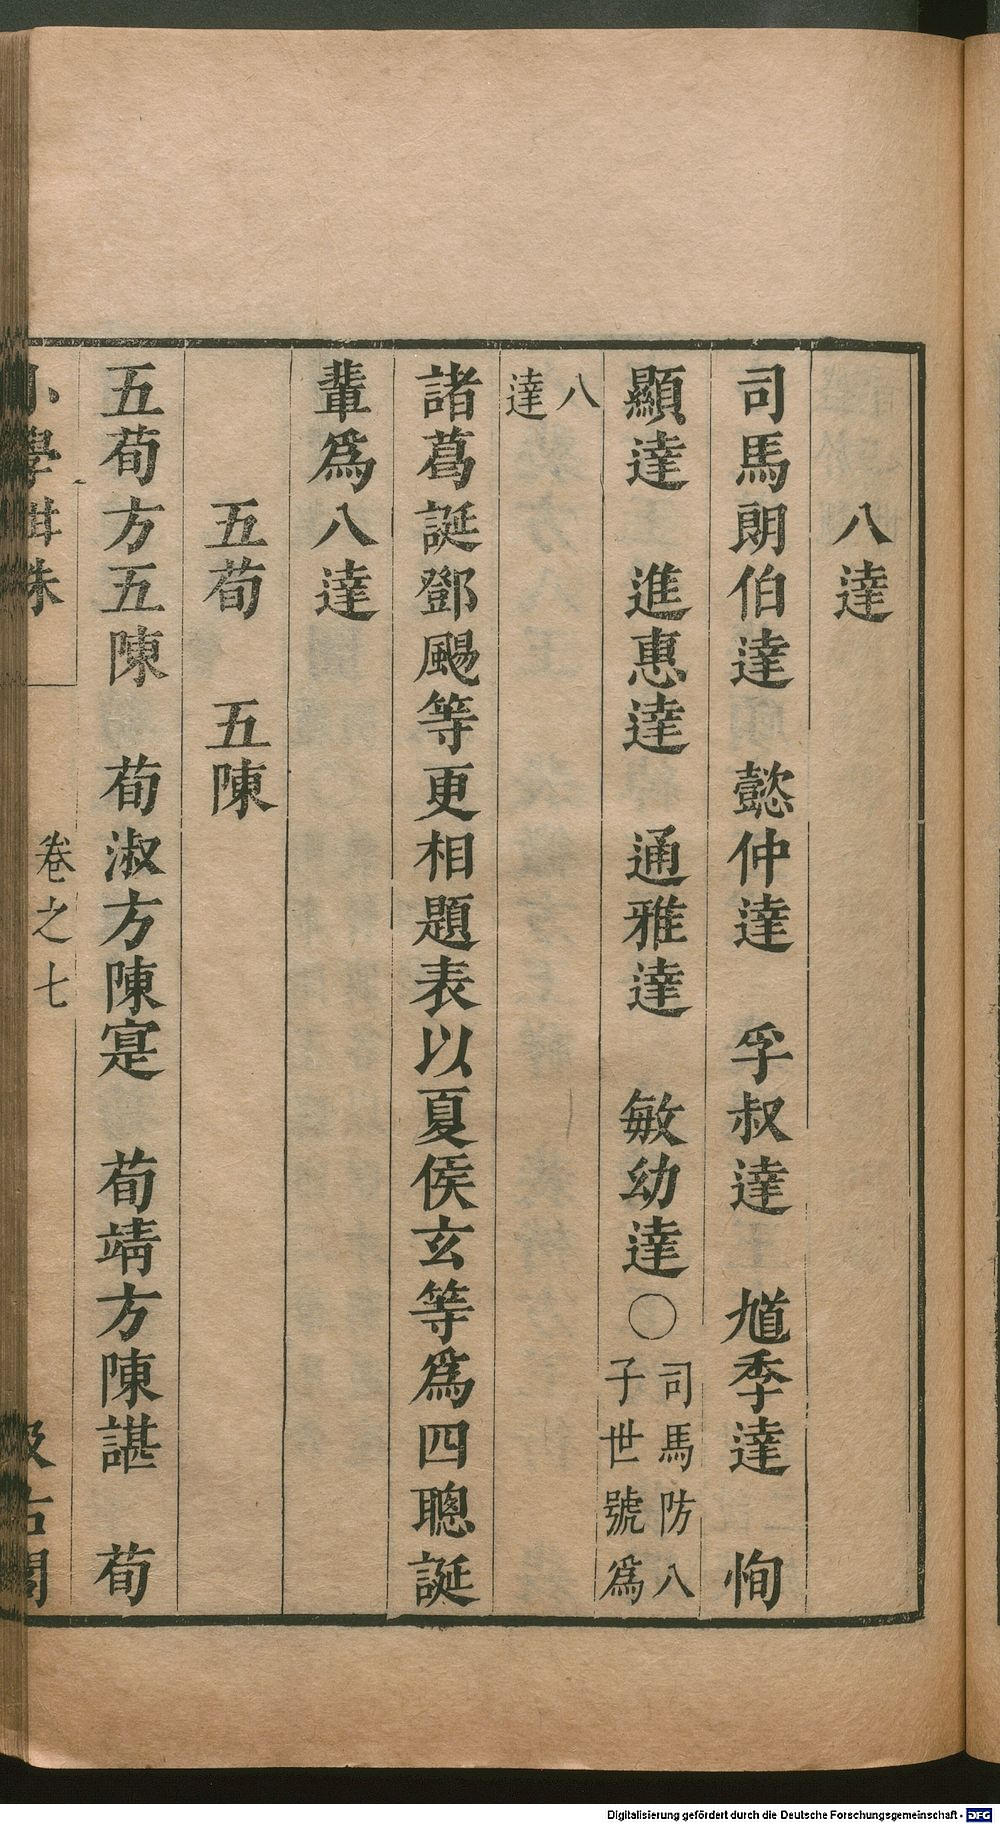 八達
司馬朗伯達　懿仲達　孚叔達　馗季達　恂
顯達　進惠達　通雅達　敏幼達〇司馬防八子世號爲
八達
諸葛誕鄧颺等更相題表以夏侯玄等爲四聰誕
輩爲八達
五荀　五陳
五荀方五陳　荀淑方陳寔　荀靖方陳諶　荀
小學紺珠　卷之七　汲古閣
Digitalisierung gefördert durch die Deutsche Forschungsgemeinschaft - DFG